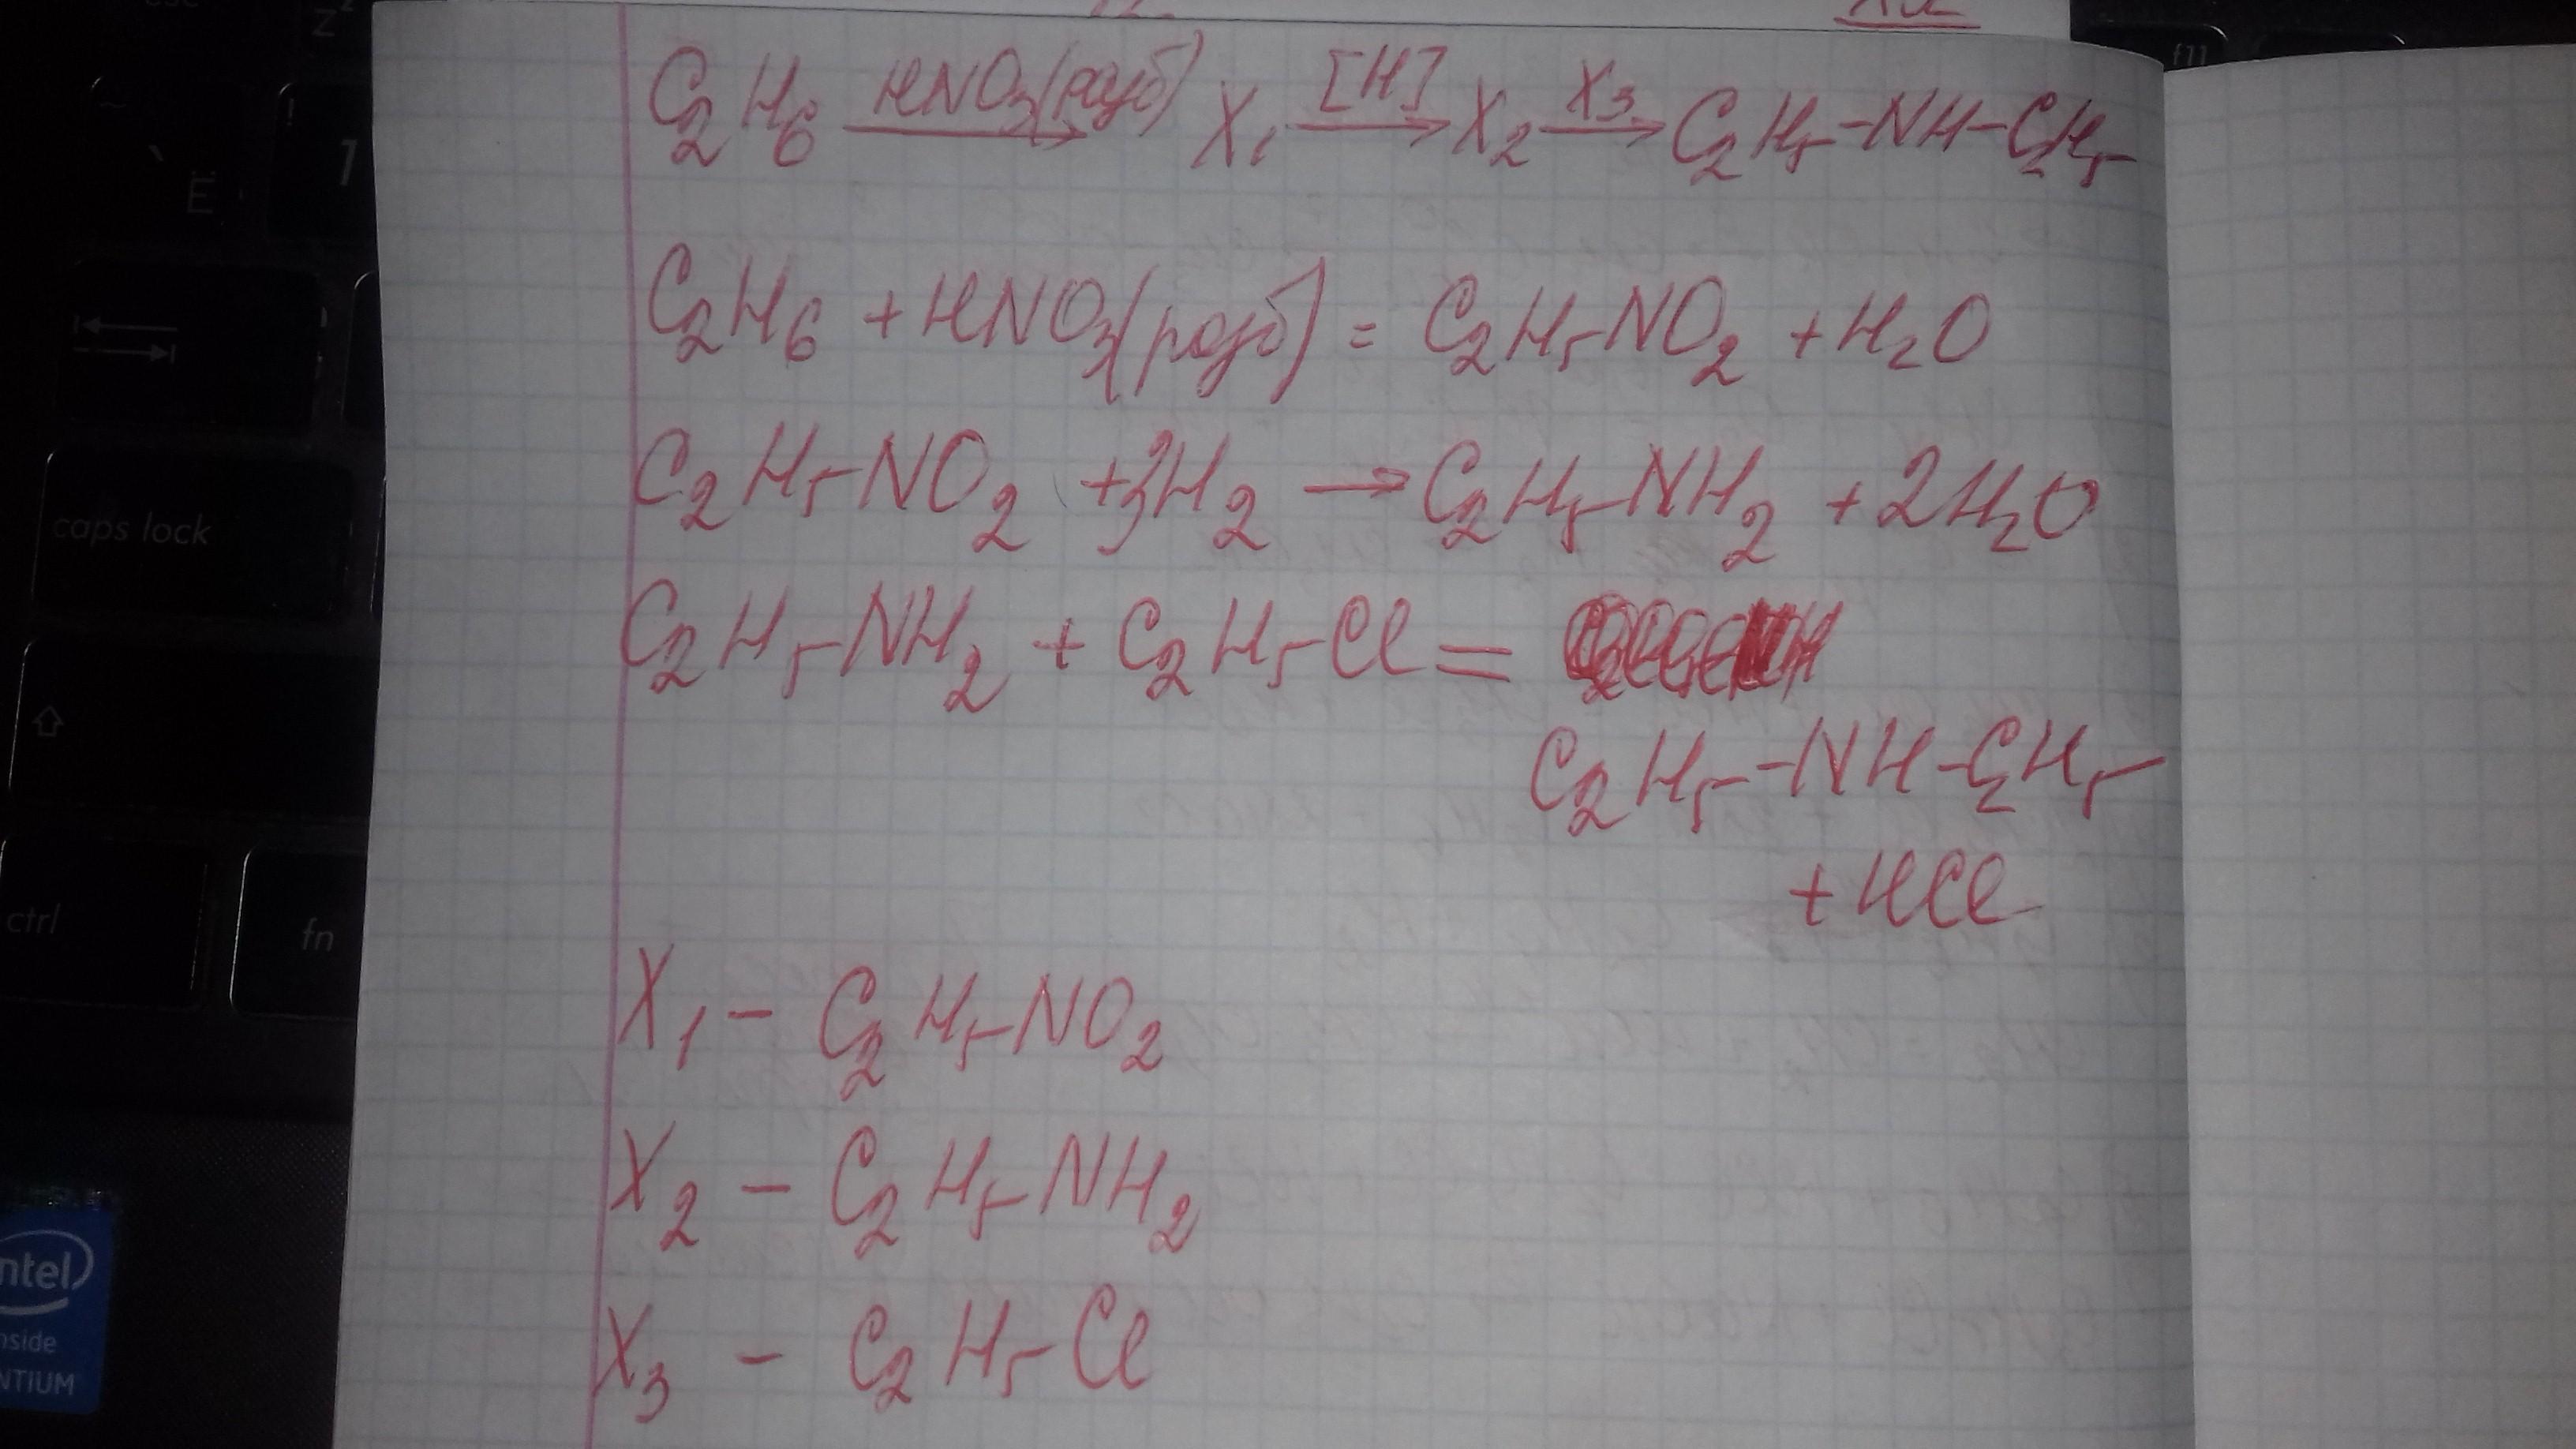 C₂H₆ —HNO₃(разб)→ X₁ —[H]→ X₂ —X₃→ C₂H₅-NH-C₂H₅
C₂H₆ + HNO₃(разб) = C₂H₅NO₂ + H₂O
C₂H₅-NO₂ + 3H₂ → C₂H₅-NH₂ + 2H₂O
C₂H₅-NH₂ + C₂H₅-Cl =
C₂H₅-NH-C₂H₅
+ HCl
X₁ - C₂H₅-NO₂
X₂ - C₂H₅-NH₂
X₃ - C₂H₅-Cl
Z
f11
Ё
1
caps lock
ctrl
fn
intel
inside
NTIUM